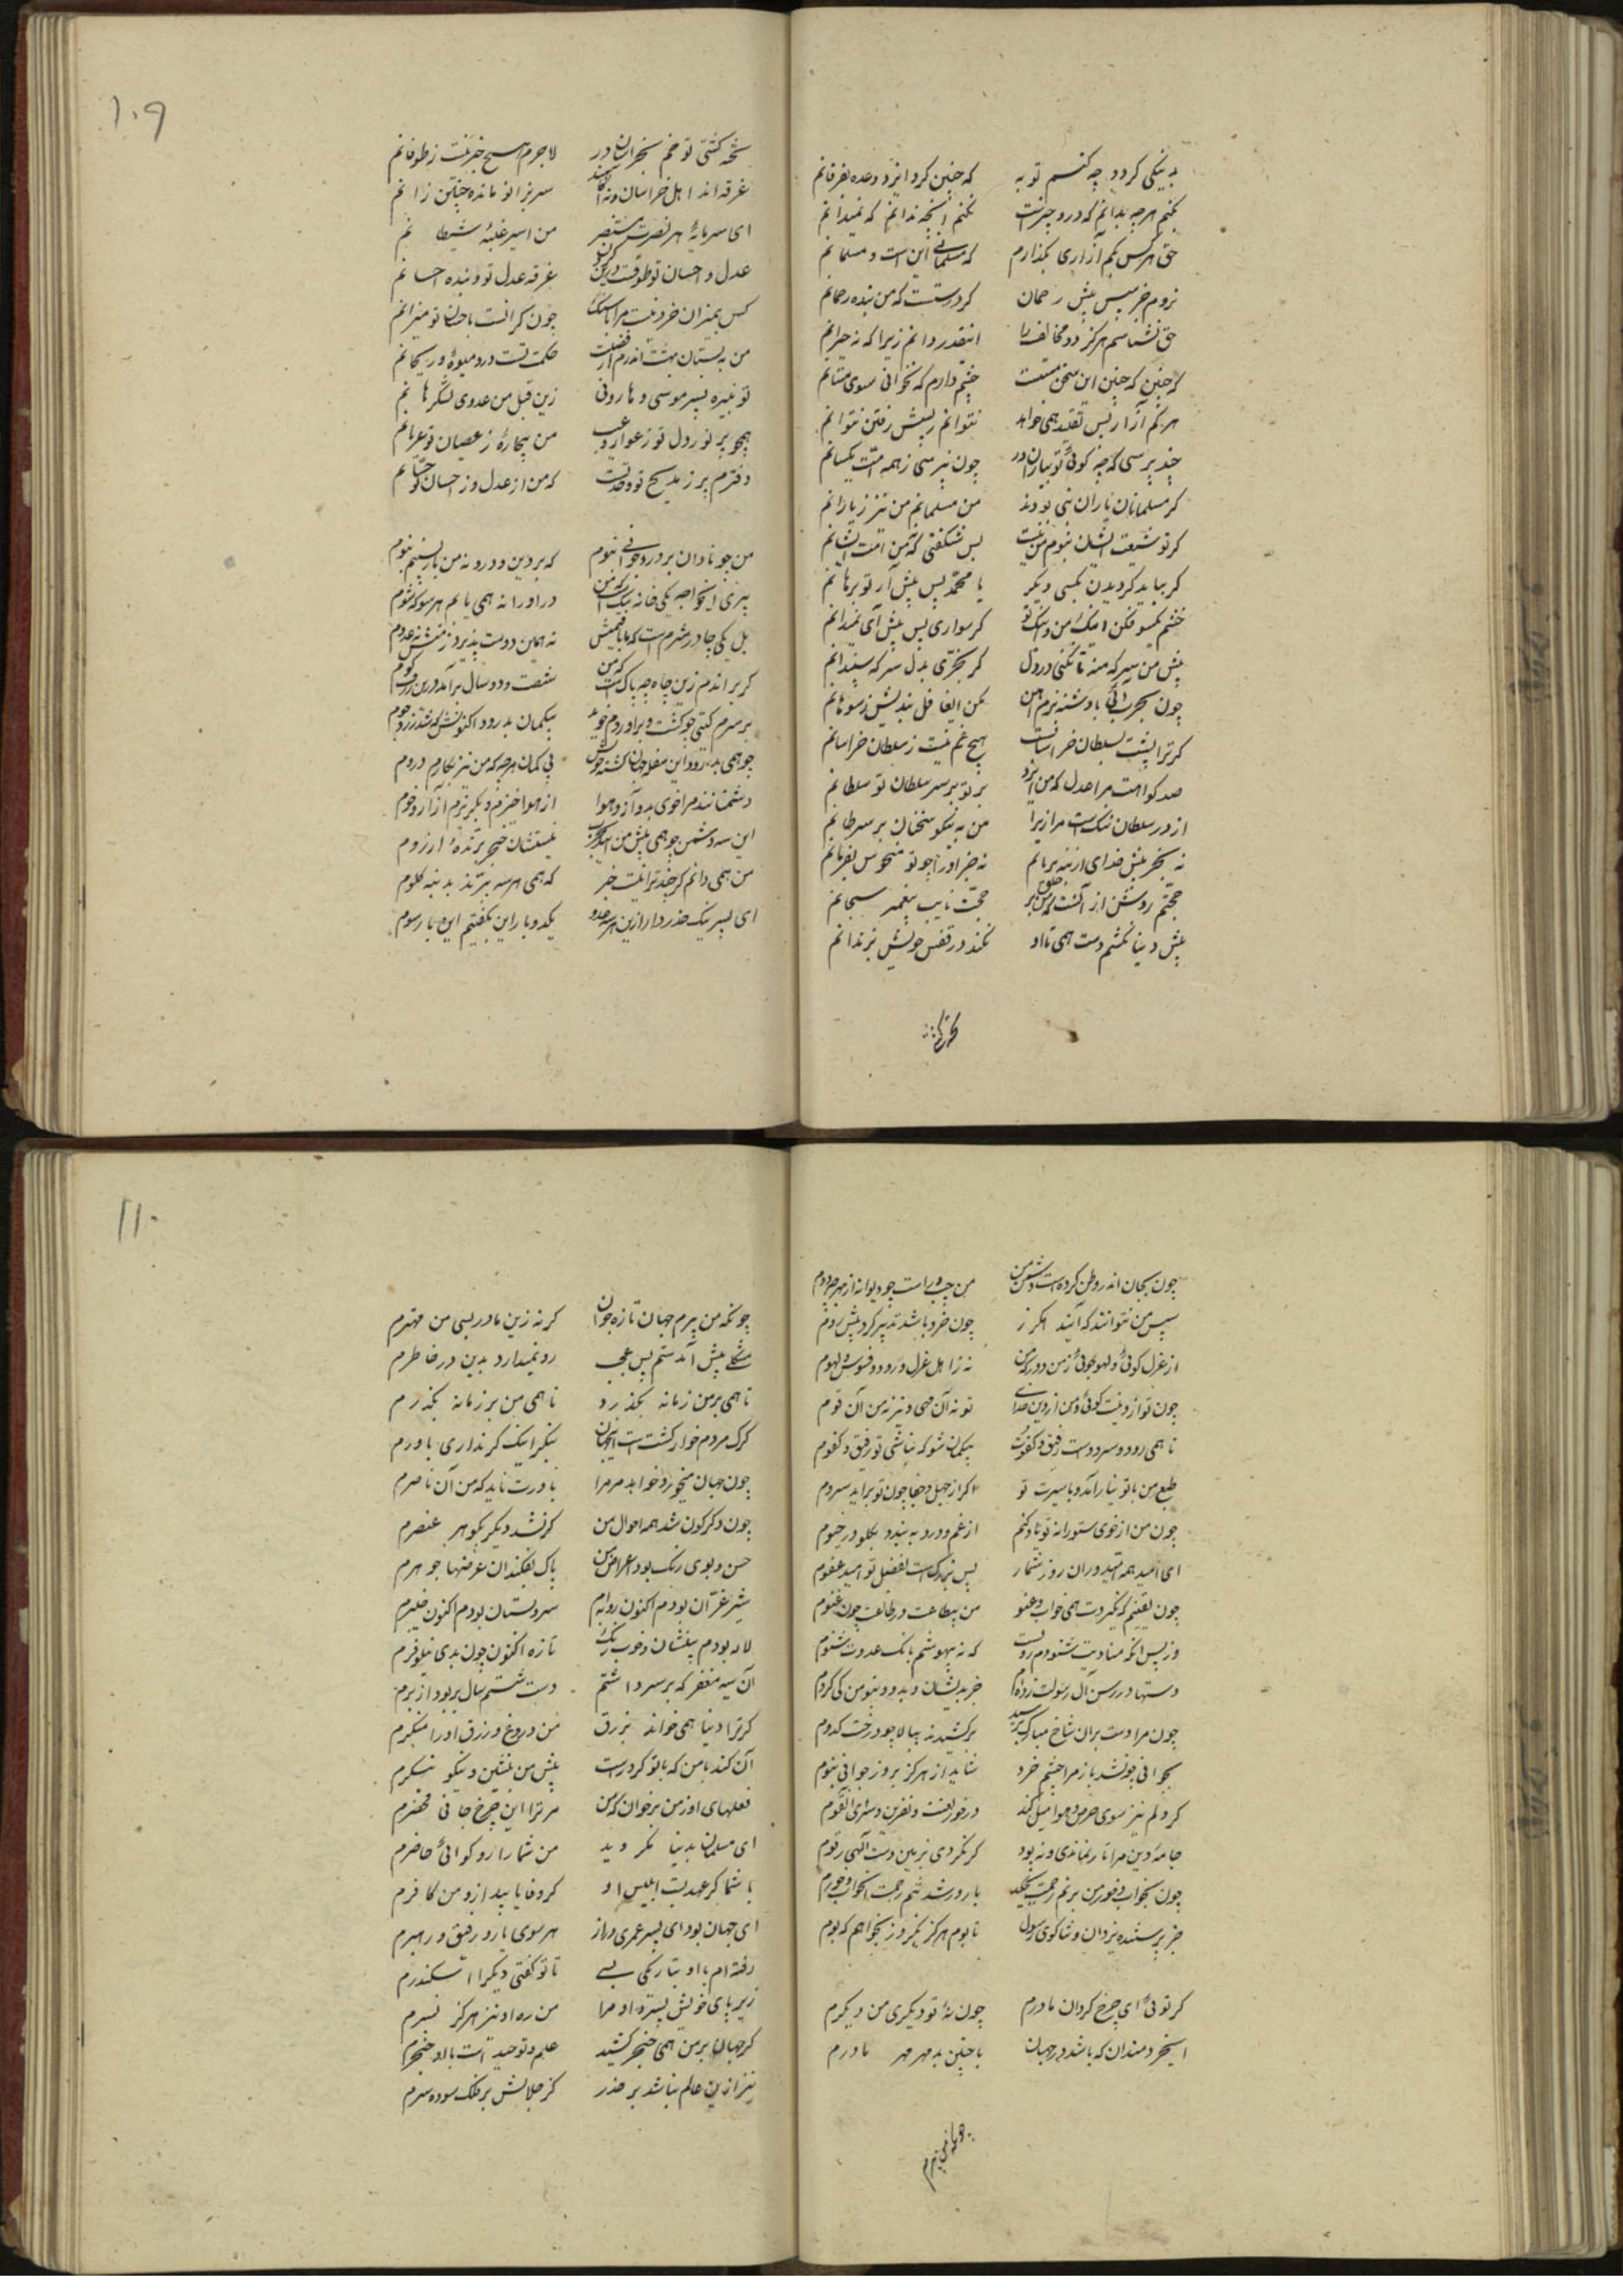 به نیکی گردد چه کنم توبه که چنین کرد ایزد وعده بفرقانم
بکنم هرچه بدانم که درو چیزست نکنم آنچه ندانم که نمیدانم
حق هرکس بکم آزاری بگذارم که مسلمانی این است و مسلمانم
نروم خر سپس پیش رحمان گر درستست که من بنده رحمانم
حق نشناسم هرگز دو مخالف را اینقدر دانم زیرا که نه حیرانم
گر چنین که چنین این سخن چشم دارم که نخوانی سوی مستانم
هرکه آن از پس تقلید همی خواهد نتوانم ز پیش رفتن نتوانم
چند پرسی که چه گوئی تو بیاران در چون نپرسی ز همه امت یکسانم
گر مسلمانان یاران نبی بودند من مسلمانم من نیز ز یارانم
گر تو شیعت ایشان نبوم من نیست بس شگفتی که من امت ایشانم
گر بباید گرویدن بکسی دیگر با محمد پس پیش آر تو برهانم
خشم یکسو فکن اینک من و اینک تو گر سواری پس پیش آی بمیدانم
پیش من سرکه منه تا نکنی در دل گر بخری بدل سرکه سپندانم
چون بحرب آئی با دشنه نرم آهن مکن ای غافل بندیش ز سوهانم
گر ترا پشت بسلطان خراسانست هیچ غم نیست ز سلطان خراسانم
صد گواهست مرا عدل که من ایزد بر تو بر سر سلطان تو سلطانم
از در سلطان ننگ است مرا زیرا من به نیکو سخنان بر سر سرطانم
نه بجز پیش خدای از بنه برپایم نه جز او را چو تو منحوس بفرمانم
حجتم روشن از آنست که من بر خلق حجت نایب پیغمبر سبحانم
پیش دنیا نکشم دست همی تا او نکند در قفس خویش بزندانم
تخته کشتی
۱۰۹
تخته کشتی نوحم بخراسان در لاجرم هیچ خبر نیست ز طوفانم
غرقه اند اهل خراسان و نه آگاهند سر بزانو مانده چنین زانم
ای سرمایه هر نصرت مستنصر من اسیر غلبه شیطانم
عدل و احسان تو طوقست درین گردن غرقه عدل تو و بنده احسانم
کس بمیزان خرد نیست مرا پاسنگ چون گرانست باحسان تو میزانم
من به بستان بهشت اندرم از فضلت حکمت تست درو میوه و ریحانم
تو نبیره پسر موسی و هارونی زین قبل من عدوی لشگر هامانم
همچو پر نور دل تو ز عوار و عیب من بیچاره ز عصیان تو عریانم
دفترم پر ز مدیح تو و جدتست که من از عدل و ز احسان تو حسانم
من چو نادان بر درد جوانی نبوم که بر دین و درو نه من باز پسم بنوم
پیری ای خواجه یکی خانه تنگست که من در او را نه همی یابم هر سو که شوم
بل یکی چادر شرمست که تا بافتمش نه همین دوست پذیرد ز منش نه عدوم
گر برآیدم زین چاه چه باکست که من شصت و دو سال برآمد درین ژرف گوم
بر سرم گیتی جو کشت و برآورد خوید بیگمان بدرود اکنونش که شد زرد جوم
چو همی بدرود این سفله جهان کشته خویش بی گمان هرچه که من نیز بکارم دروم
دشمنانند مرا خوی بد و آز و هوا از هوا خیزم و بگریزم از آز و خوم
این سه دشمن چو همی پیش من آیند بحرب نیستشان خنجر برنده آرزوم
من همی دانم گر چند ترا نیست خبر که همی هر سه ببرند به پنبه گلوم
ای پسر نیک حذر دار ازین هر سه عدو یک دو بار این بگفتیم این بار سوم
چون بجان اندر وطن کرده است دشمن من من چپ و راست چو دیوانه از بهر چه دوم
سپس من نتوانند که آیند اگر ز چون خرد باشد تدبیر گر و پیش روم
از غزل گوئی و لهو جوئی ز من دور که من نه ز اهل غزل و رود و فسوس و لهوم
چون تو از دنیت گوئی و من از دین خدای تو نه آن حی و نیز نه من آن قوم
تا همی رود و سرودست رفیق و کفوت بیگمان شو که نباشی تو رفیق و کفوم
طبع من با تو نیارامد و با سیرت تو اگر از جهل و جفا چون تو برآید سروم
چون من از خوی ستورانه تو یاد کنم از غم و درد به بندد بگلو در خیوم
ای امید همه امیدوران روز شمار بس بزرگ است بفضل تو امید عفوم
چون یقینم که نگیردت همی خواب و غنو من بیطاعت در طاعت چون غنوم
وز پس آنکه منادیت شنودم ز ولیت که نه بیهوشم بانگ عدوت شنوم
دستها در رسن آل رسولت زده‌ام خر بدیشان وبدو و بتو من کی گروم
چون مرا دست بران شاخ مبارک برسید برکشیدند ببالا چو درخت کدوم
بجوانی چو نشد باز مرا چشم خرد شاید ار هرگز بروز جوانی نبوم
گر دلم نیز سوی حرص و هوا میل کند در خور لعنت و نفرین و سزای تفوم
جامه دین مرا تار نماندی و نه پود گر نکردی بزمین دست الهی رفوم
چون بخواب و خور من برنم رحمت نچکید بارور شد بنم رحمت آنخواب و خورم
جز پرستنده یزدان و ثنا گوی رسول تا بوم هرگز یک روز نخواهم که بوم
گر توئی ای چرخ گردان مادرم چون نه تو دیگری من دیگرم
ای خردمندان که باشد در جهان با چنین بد مهر مهر مادرم
چونکه من پیرم
۱۱۰
چونکه من پیرم جهان تازه جوان گر نه زین مادر بسی من مهترم
مشکلی پیش آمدستم بس عجب ره نمیدارد بدین در خاطرم
تا همی بر من زمانه بگذرد تا همی من بر زمانه بگذرم
گرگ مردم خوار گشت است اینجهان بنگر اینک گر نداری باورم
چون جهان میخورد خواهد مر مرا باورت ناید که من آن ناصرم
چون دگرگون شد همه احوال من گر نشد دیگر بگوهر عنصرم
حسن و بوی و رنگ بود اعراض من پاک بفکند آن عرضها جوهرم
شیر غران بودم اکنون روبهم سرو بستان بودم اکنون چنبرم
لاله بودم بنفشان خوب رنگ تازه اکنون چون بدی نیلوفرم
آن سیه مغفر که بر سر داشتم دست شستم سال بربود از برم
گر ترا دنیا همی خواند بزرق من دروغ و زرق او را منکرم
آن کند با من که با تو کردست پیش من بنشین و نیکو بنگرم
فعلهای او ز من برخوان که من مر ترا این چرخ جافی محضرم
ای مسلمانان بدنیا مگروید من شما را زو گوائی حاضرم
با شما گر عهد بست ابلیس او گر وفا یابید ازو من کافرم
ای جهان بود ای پسر عمری دراز هر سوی یار و رفیق و رهبرم
رفته‌ام با او بتاریکی بسی تا تو گفتی دیگر اسکندرم
زیر پای خویش بسپرد او مرا من ره او نیز هرگز نسپرم
گر جهان بر من همی خنجر کشید علم و توحیدست با او خنجرم
نیز ازین عالم نباشد بر حذر کز جلالش بر فلک سوده سرم